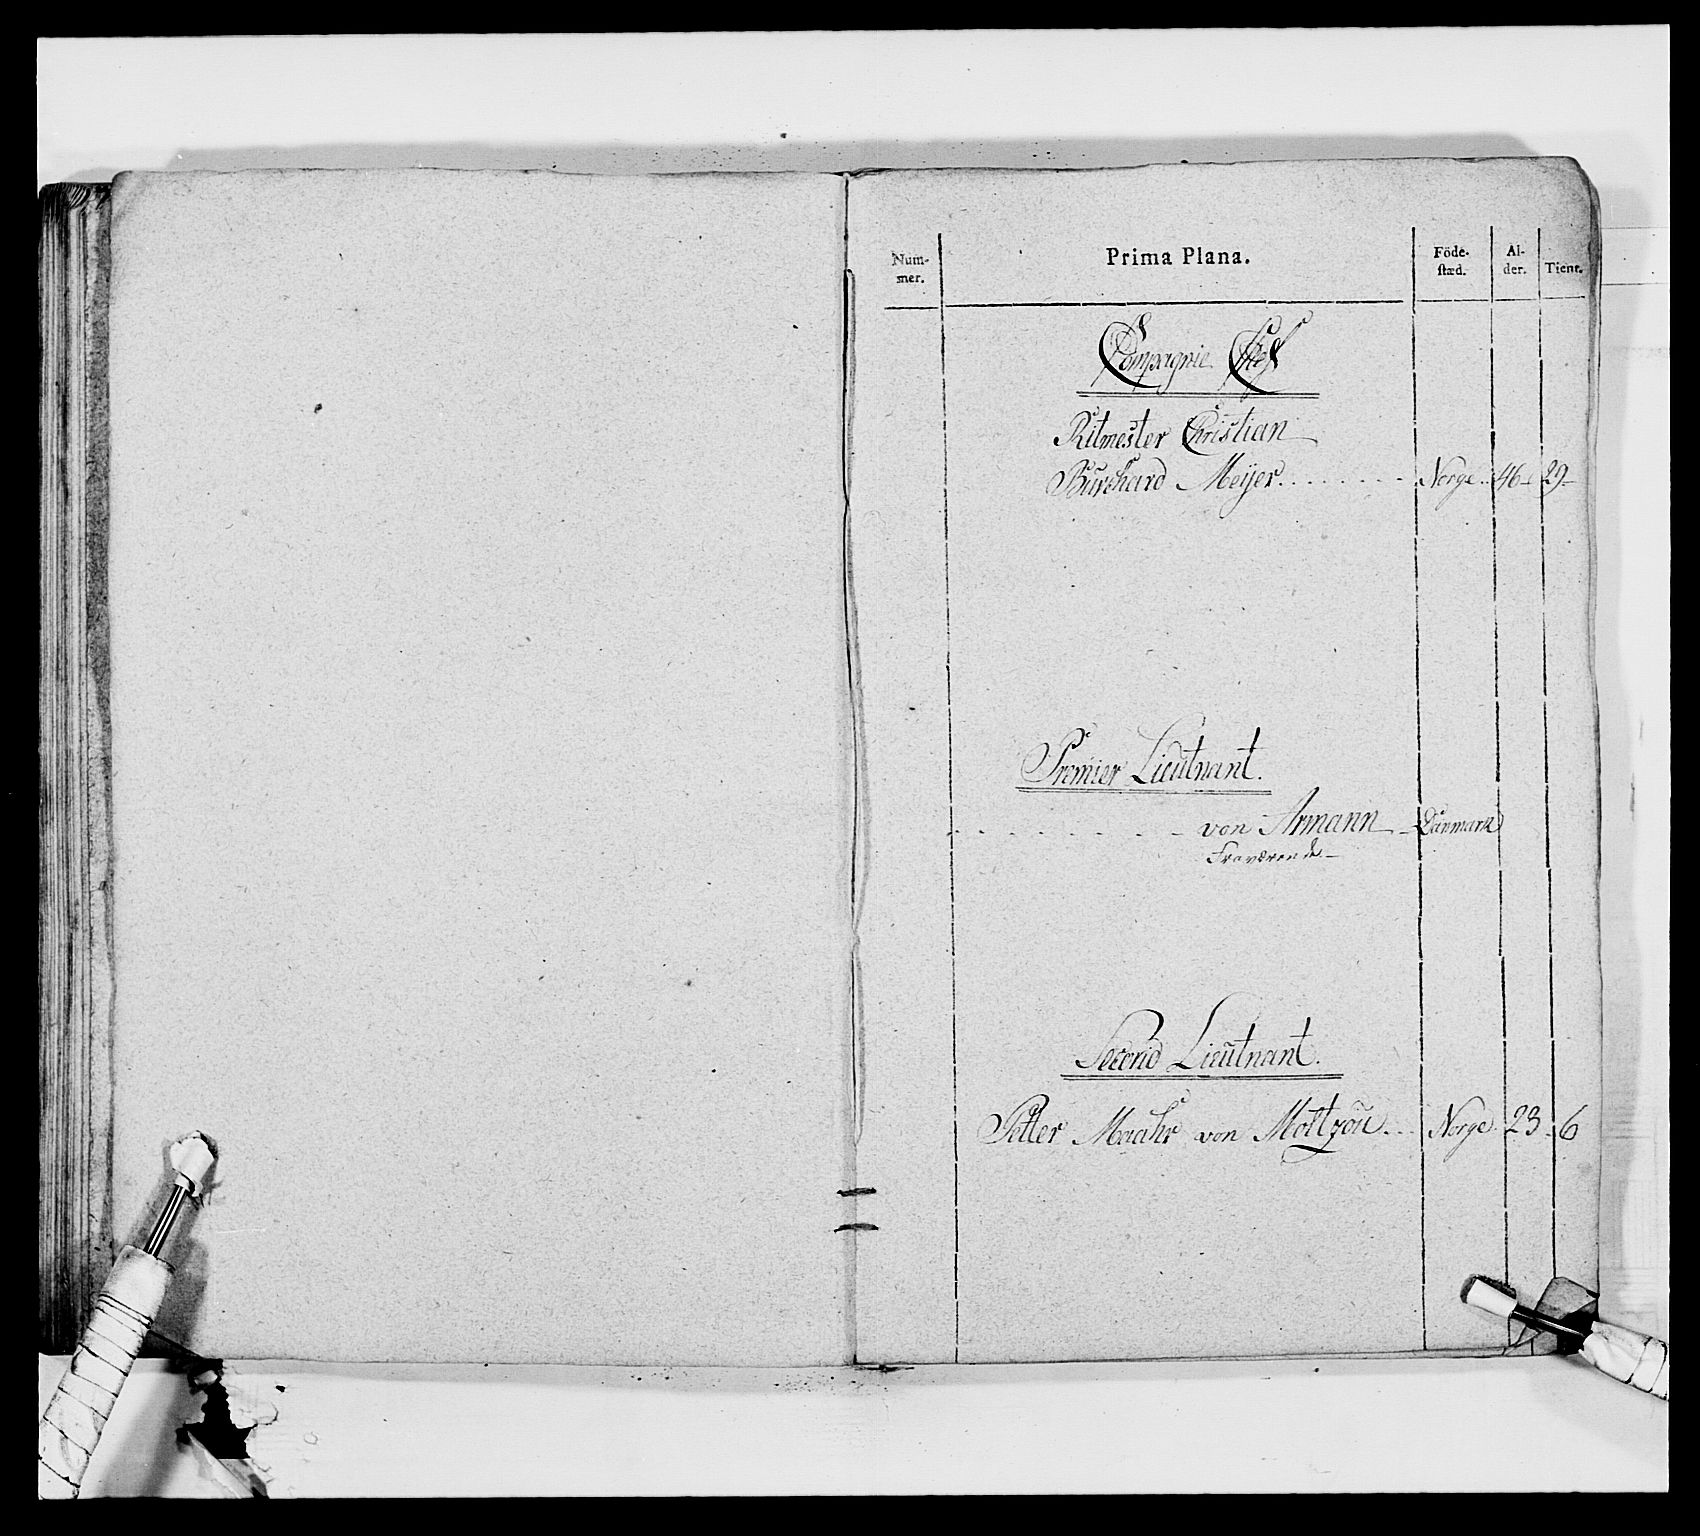 Num-
mer.
Prima Plana.
Föde-
stæd.
Al-
der.
Tient.
Compagnie Chef
Ritmester Christian
Burchard Meijer........ Norge.. 46- 29-
Premier Lieutnant.
von Armann Danmark
Fraværende-
Second Lieutnant.
Petter Maahr von Moltzou... Norge. 23 6